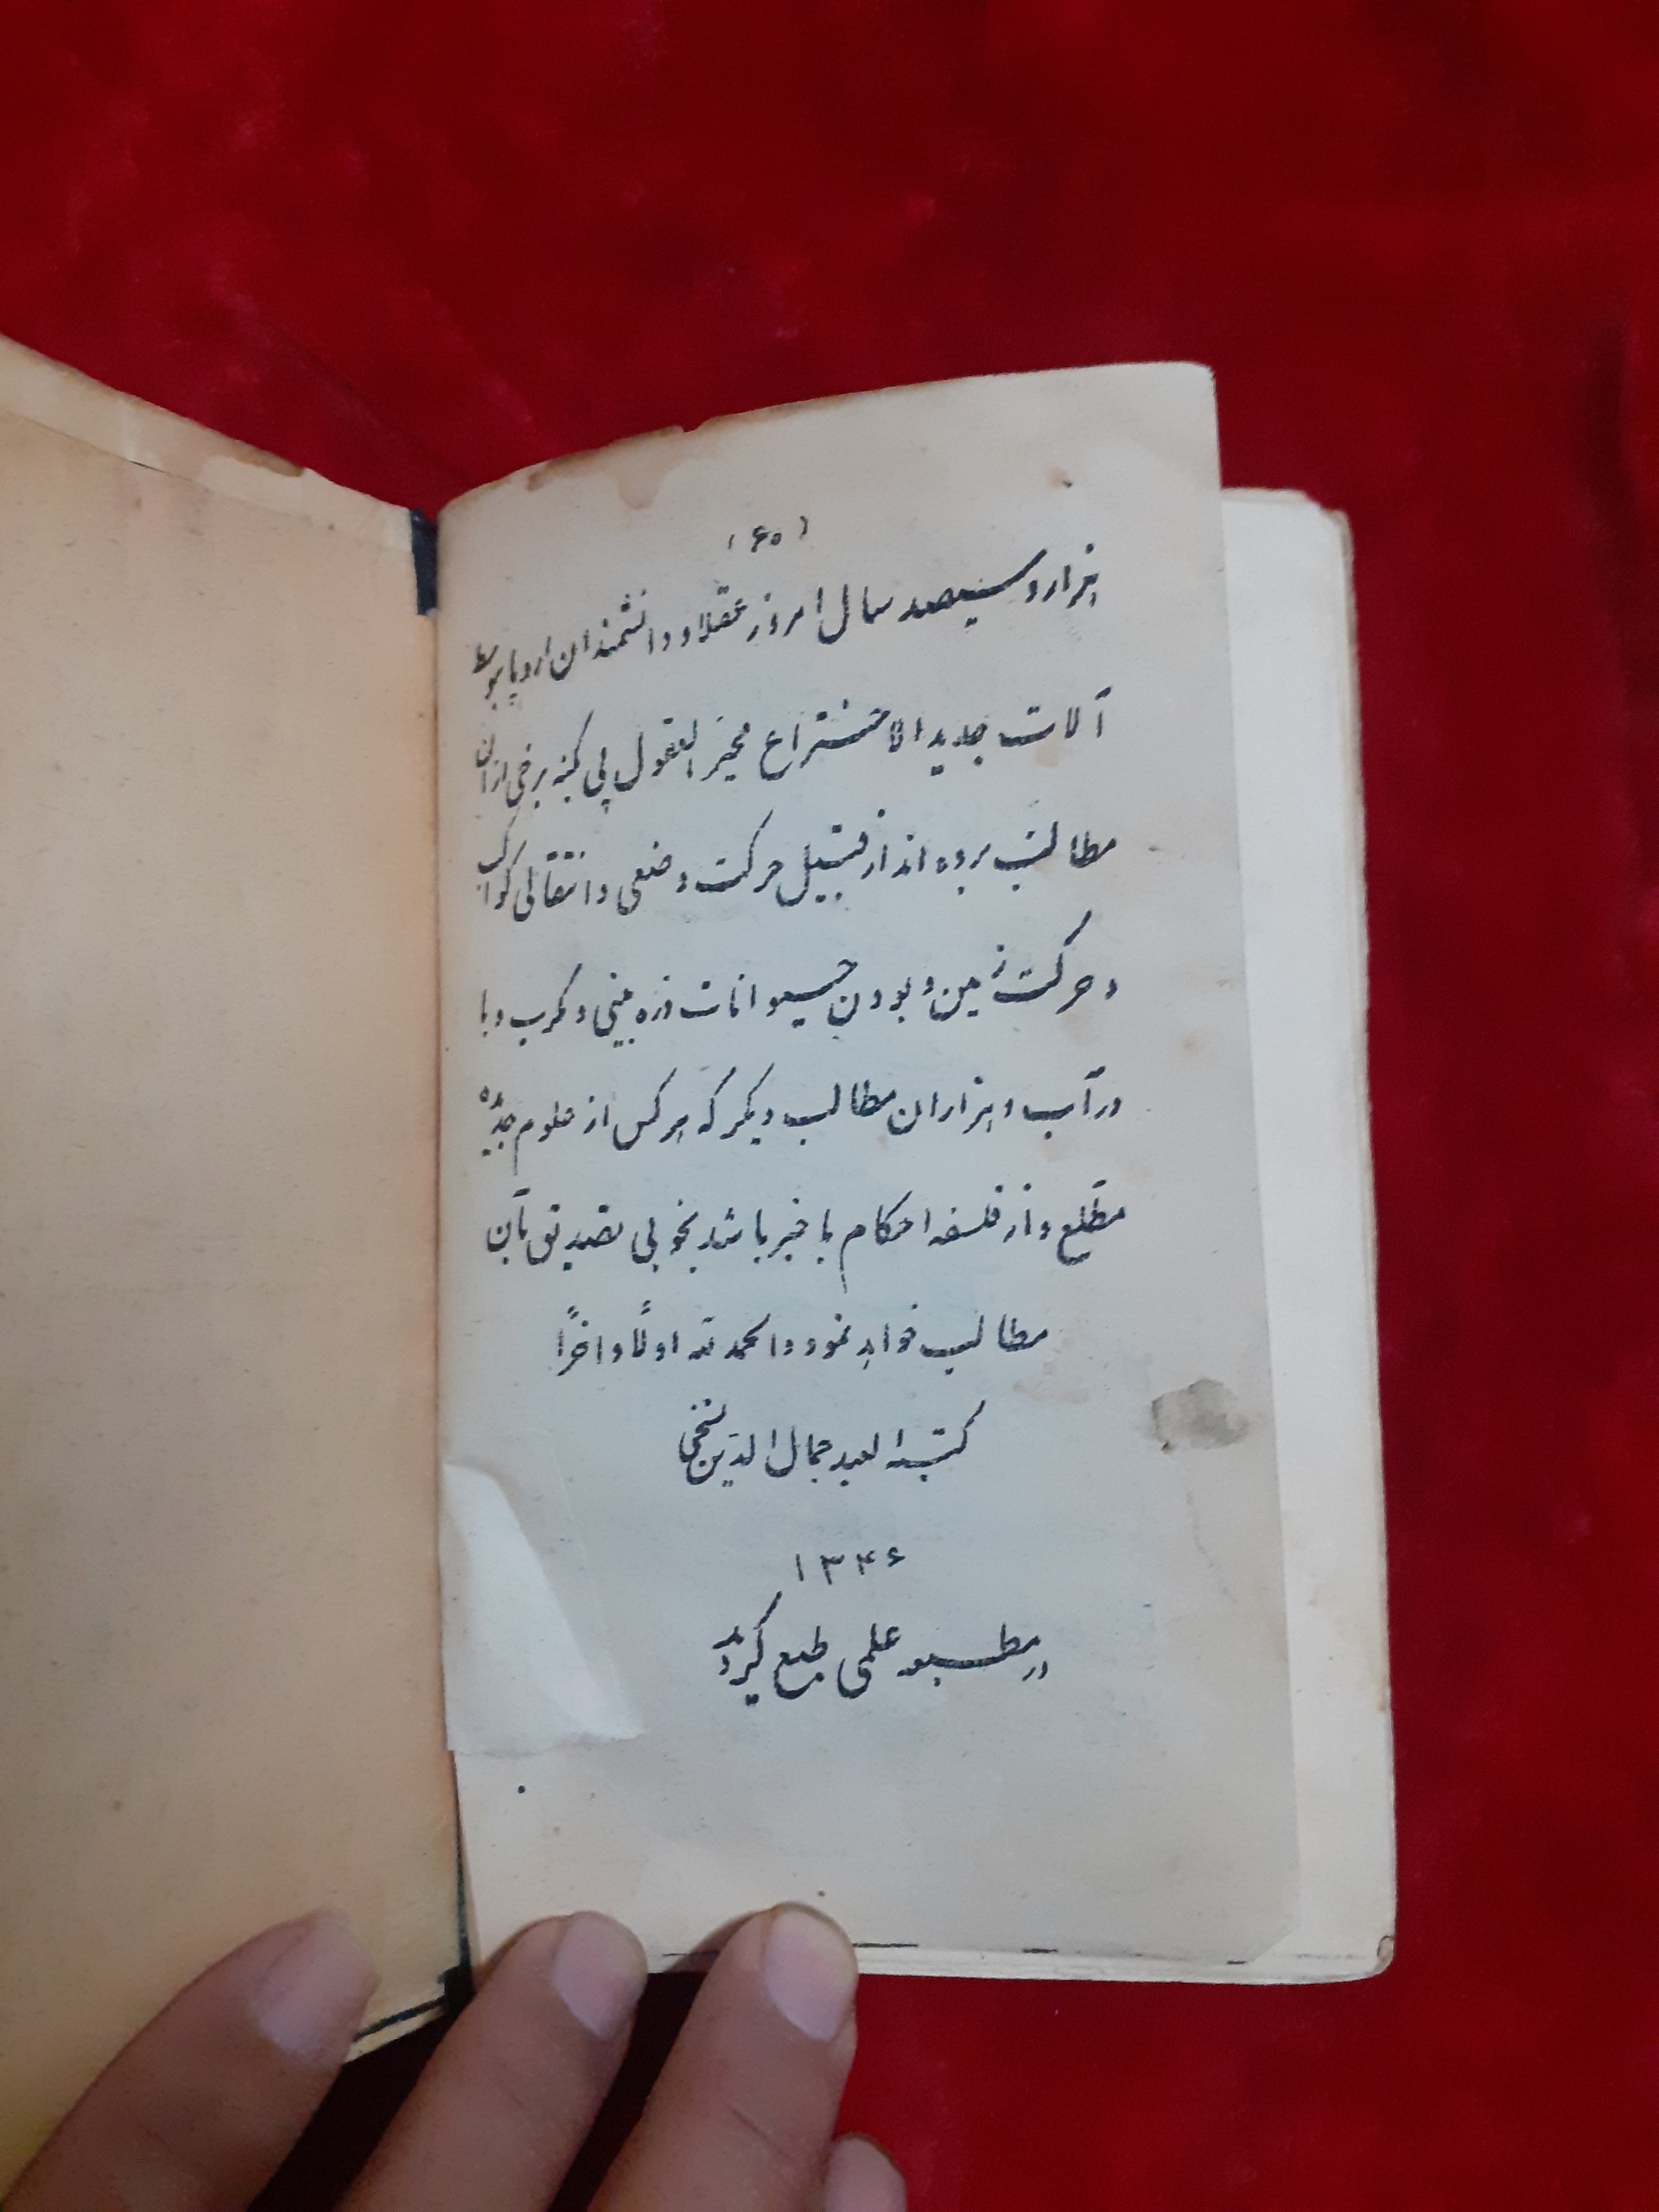 (۶۰)
هزار و سیصد سال امروز عقلاء و دانشمندان اروپا بتوسط
آلات جدید الاختراع محیر العقول پی بکنه برخی از آن
مطالب برده اند از قبیل حرکت وضعی و انتقالی کواکب
و حرکت زمین و بودن حیوانات ذره بینی و مکرب و با
در آب و هزاران مطالب دیگر که هر کس از علوم جدیده
مطّلع و از فلسفه احکام با خبر باشد بخوبی تصدیق بآن
مطالب خواهد نمود و الحمد لله اولًا و اخرًا
کتبه العبد جمال الدین
۱۳۴۶
در مطبعه علمی طبع گردید